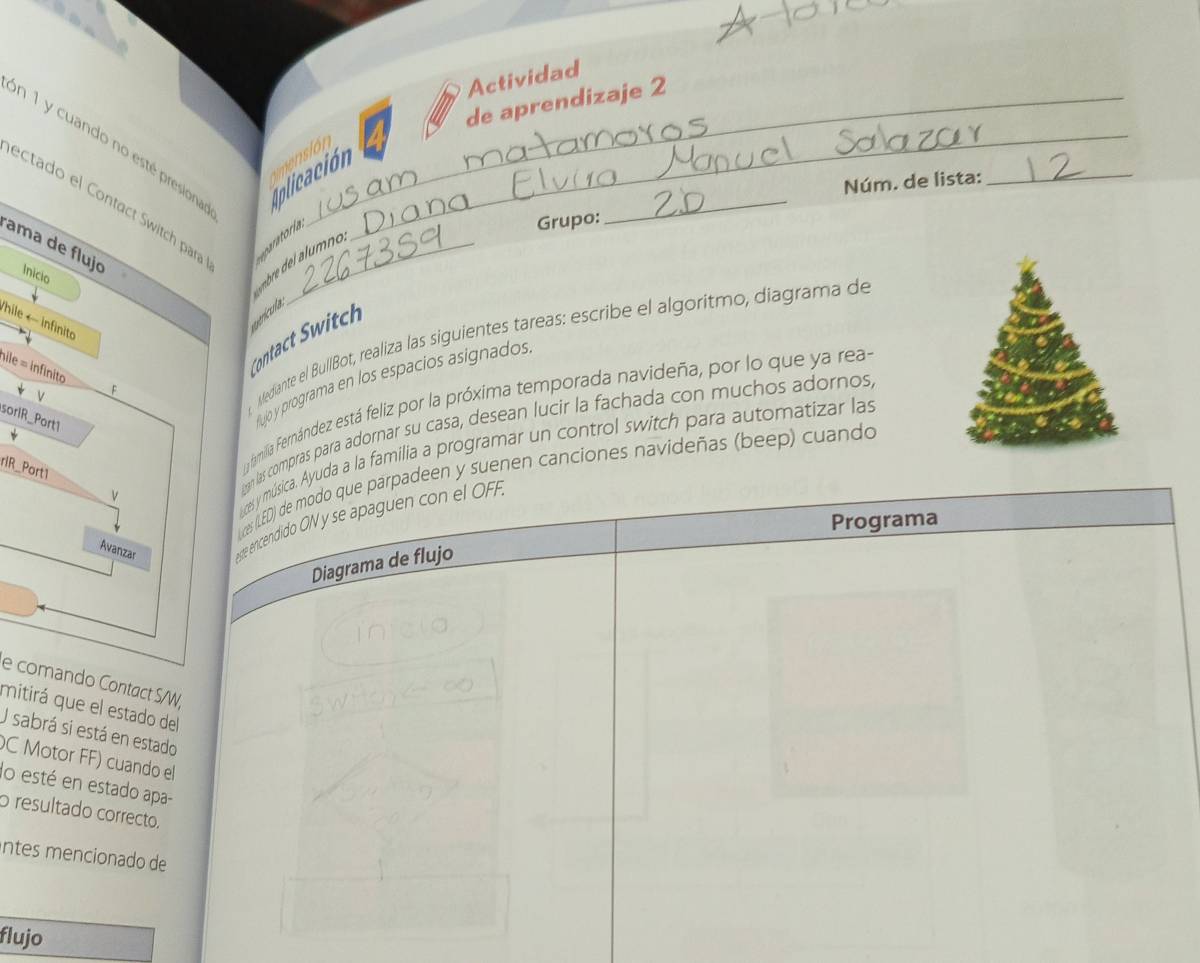 tón 1 y cuando no esté presionado,
nectado el Contact Switch para la
rama de flujo
Inicio
While ← infinito
hile = infinito
F
V
sorIR_Port1
rIR_Port1
V
Avanzar
le comando Contact S/W,
mitirá que el estado del
U sabrá si está en estado
DC Motor FF) cuando el
do esté en estado apa-
o resultado correcto.
antes mencionado de
flujo
Dimensión
Aplicación 4
Actividad
de aprendizaje 2
Preparatoria: Iusam matamoros
Nombre del alumno: Diana Elvira Manuel Salazar
Matrícula: 2267359 Grupo: 2D Núm. de lista: 12
Contact Switch
1. Mediante el BullBot, realiza las siguientes tareas: escribe el algoritmo, diagrama de
flujo y programa en los espacios asignados.
La familia Fernández está feliz por la próxima temporada navideña, por lo que ya rea-
lizan las compras para adornar su casa, desean lucir la fachada con muchos adornos,
luces y música. Ayuda a la familia a programar un control switch para automatizar las
luces (LED) de modo que parpadeen y suenen canciones navideñas (beep) cuando
este encendido ON y se apaguen con el OFF.
Diagrama de flujo Programa
inicio
Switch ← ∞